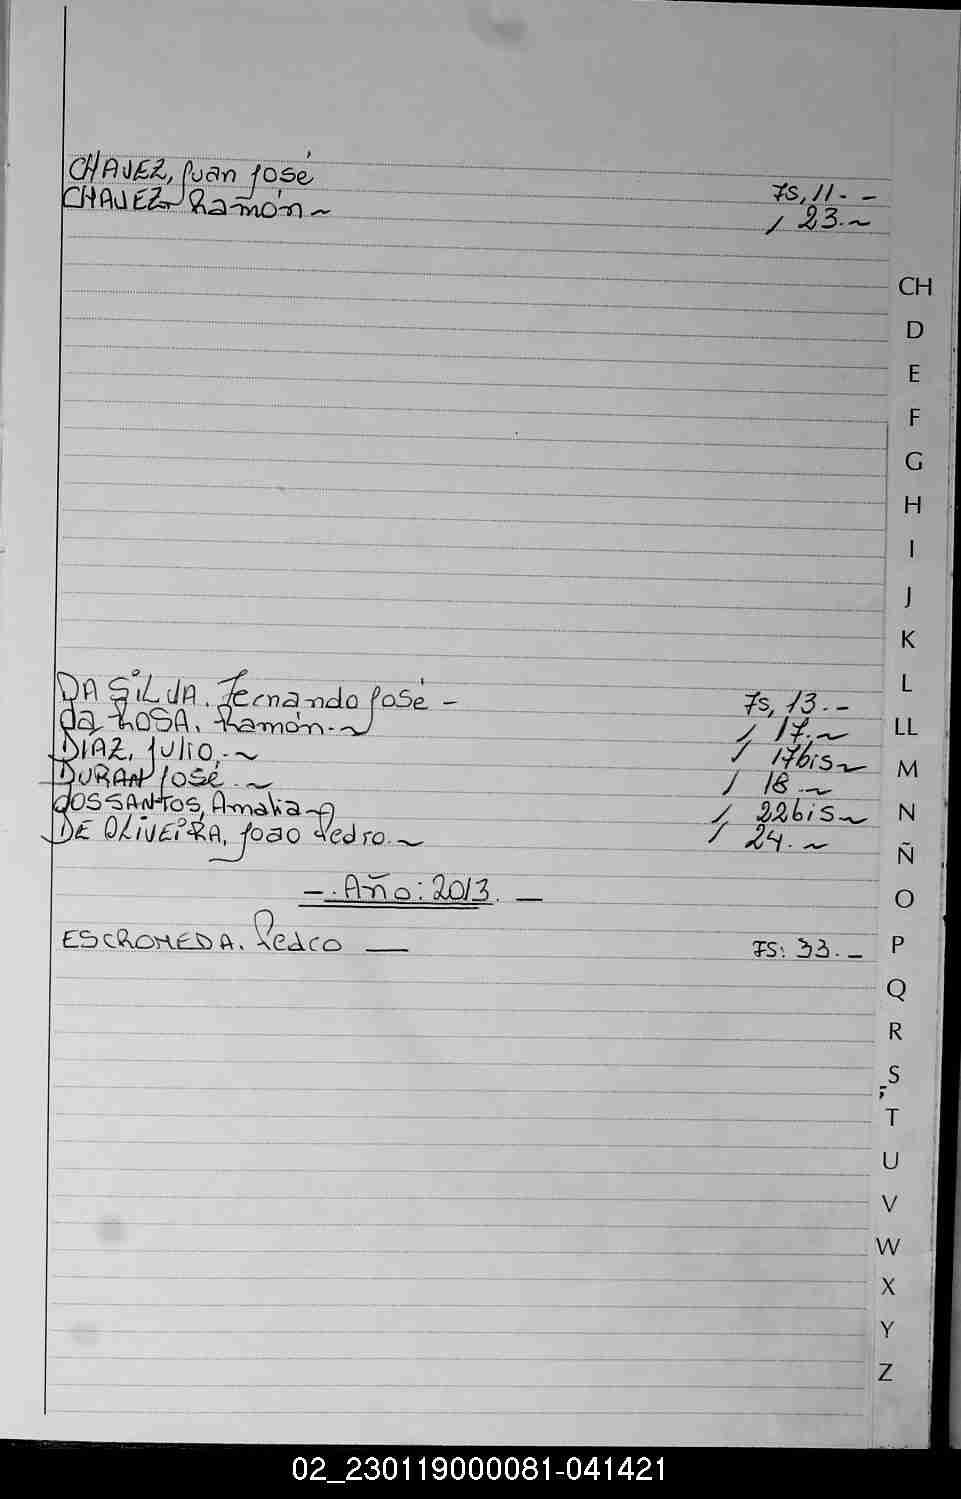 CHAVEZ, Juan José fs, 11. -
CHAVEZ Ramón ~ / 23. ~
CH
D
E
F
G
H
I
J
K
L
LL
M
N
Ñ
O
P
Q
R
S
T
U
V
W
X
Y
Z
DA SiLVA. Fernando José - fs, 13. -
da ROSA. Ramón. ~ / 17. ~
DIAZ, Julio. ~ / 17bis ~
DURAN José ~ / 18 ~
dos SANTOS, Amalia ~ / 22bis ~
DE OLiVEiRA, Joao Pedro. ~ / 24. ~
-. Año: 2013. -
ESCROMEDA. Pedro — fs: 33. -
02_230119000081-041421